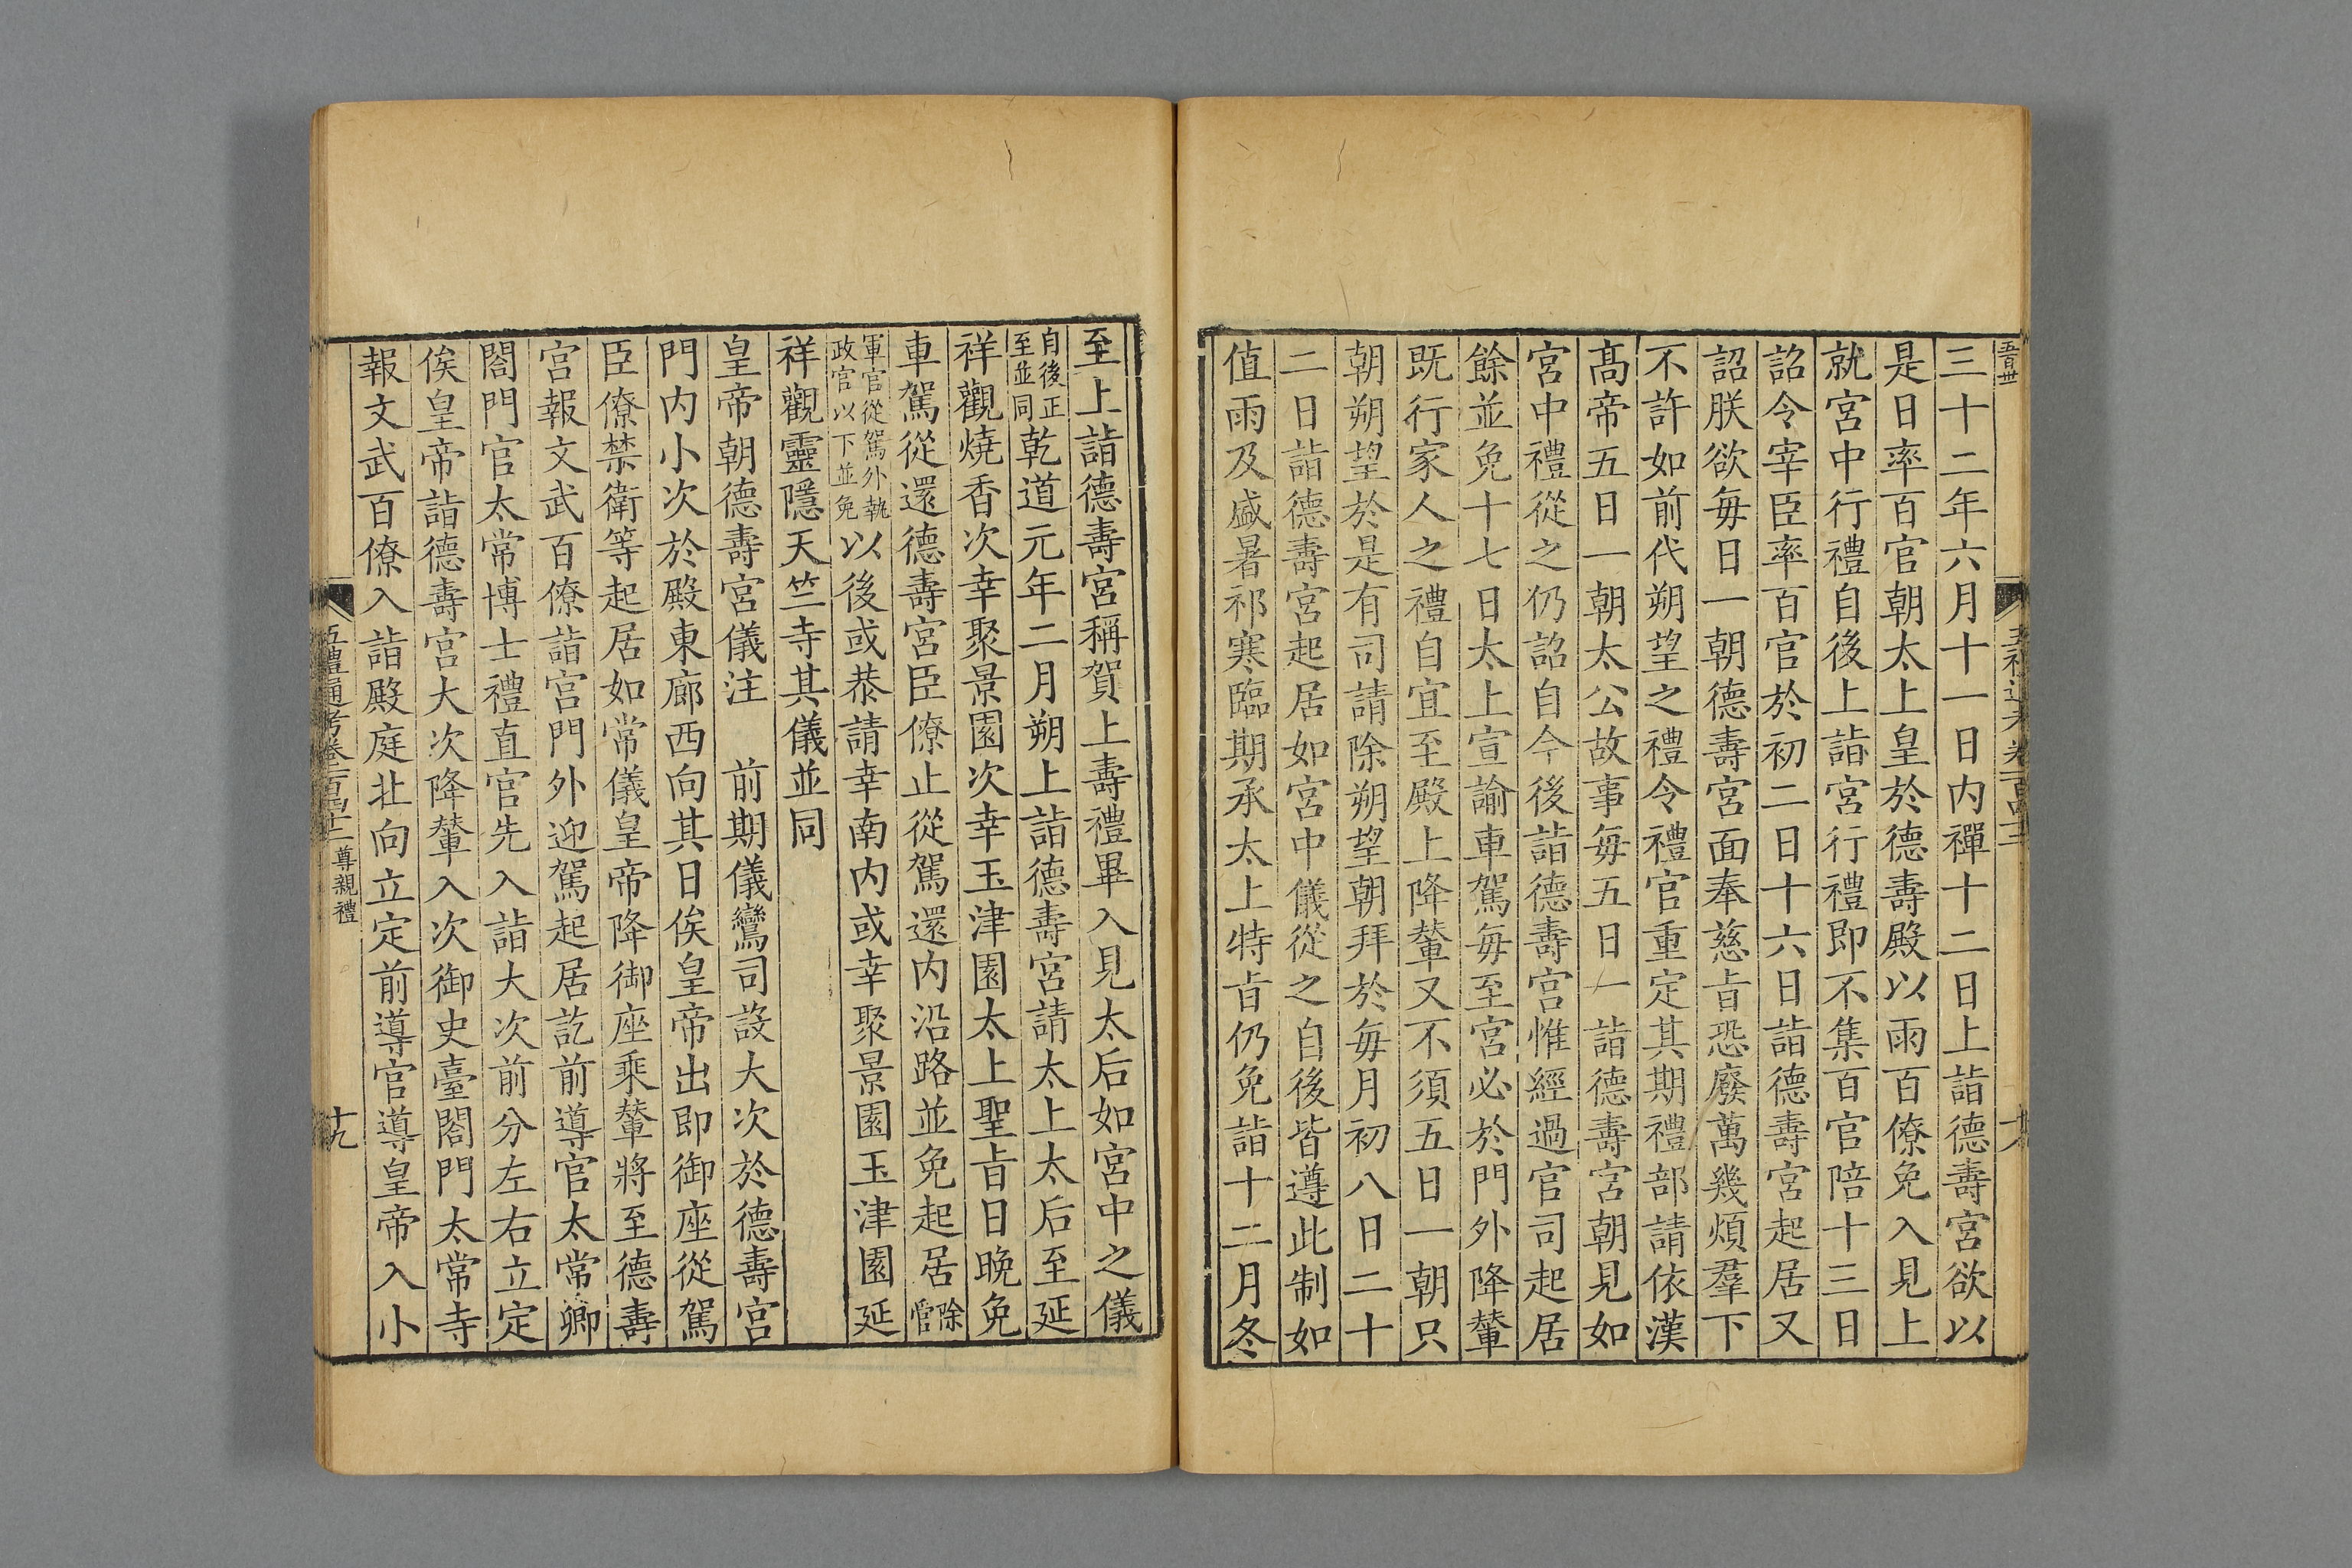 三十二年六月十一日内禪十二日上詣德壽宮欲以
是日率百官朝太上皇於德壽殿以雨百僚免入見上
就宮中行禮自後上詣宮行禮即不集百官陪十三日
詔令宰臣率百官於初二日十六日詣德壽宮起居又
詔朕欲每日一朝德壽宮面奉慈㫖恐廢萬幾煩羣下
不許如前代朔望之禮令禮官重定其期禮部請依漢
髙帝五日一朝太公故事每五日一詣德壽宮朝見如
宮中禮從之仍詔自今後詣德壽宮惟經過官司起居
餘並免十七日太上宣諭車駕每至宮必於門外降輦
既行家人之禮自宜至殿上降輦又不須五日一朝只
朝朔望於是有司請除朔望朝拜於每月初八日二十
二日詣德壽宮起居如宮中儀從之自後皆遵此制如
值雨及盛暑祁寒臨期承太上特㫖仍免詣十二月冬
至上詣德壽宮稱賀上壽禮畢入見太后如宮中之儀
自後正至並同乾道元年二月朔上詣德壽宮請太上太后至延
祥觀燒香次幸聚景園次幸玉津園太上聖㫖日晚免
車駕從還德壽宮臣僚止從駕還内沿路並免起居除管
軍官從駕外執政官以下並免以後或恭請幸南内或幸聚景園玉津園延
祥觀靈隱天竺寺其儀並同
皇帝朝德壽宮儀注　前期儀鸞司設大次於德壽宮
門内小次於殿東廊西向其日俟皇帝出即御座從駕
臣僚禁衛等起居如常儀皇帝降御座乘輦將至德壽
宮報文武百僚詣宮門外迎駕起居訖前導官太常卿
閤門官太常博士禮直官先入詣大次前分左右立定
俟皇帝詣德壽宮大次降輦入次御史臺閤門太常寺
報文武百僚入詣殿庭北向立定前導官導皇帝入小
五禮通考卷一百四十二 尊親禮 十九